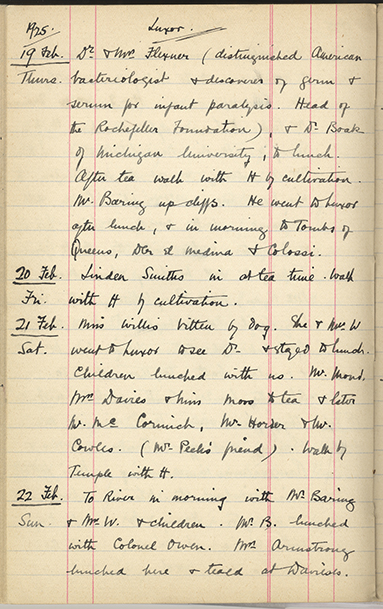 1925. Luxor.
19 Feb. Dr. & Mrs. Flexner (distinguished American
Thurs. bacteriologist & discoverer of germ &
serum for infant paralysis. Head of
the Rockefeller Foundation), & Dr. Boak
of Michigan University, to lunch.
After tea walk with H by cultivation.
Mr. Baring up cliffs. He went to Luxor
after lunch, & in morning to Tombs of
Queens, Der el Medina & Colossi.
20 Feb. Linden Smiths in at tea time. Walk
Fri. with H by cultivation.
21 Feb. Miss Willis bitten by dog. She & Mrs. W
Sat. went to Luxor to see Dr. & stayed to lunch.
Children lunched with us. Mr. Mond,
Mrs Davies & Miss Moss to tea & later
Mr. Mc Cormick, Mr. Horser & Mr.
Cowles. (Mr. Peck's friend). Walk by
Temple with H.
22 Feb. To River in morning with Mr. Baring
Sun. & Mrs. W. & children. Mr. B. lunched
with Colonel Owen. Mrs. Armstrong
lunched here & tea'd at Davieses.